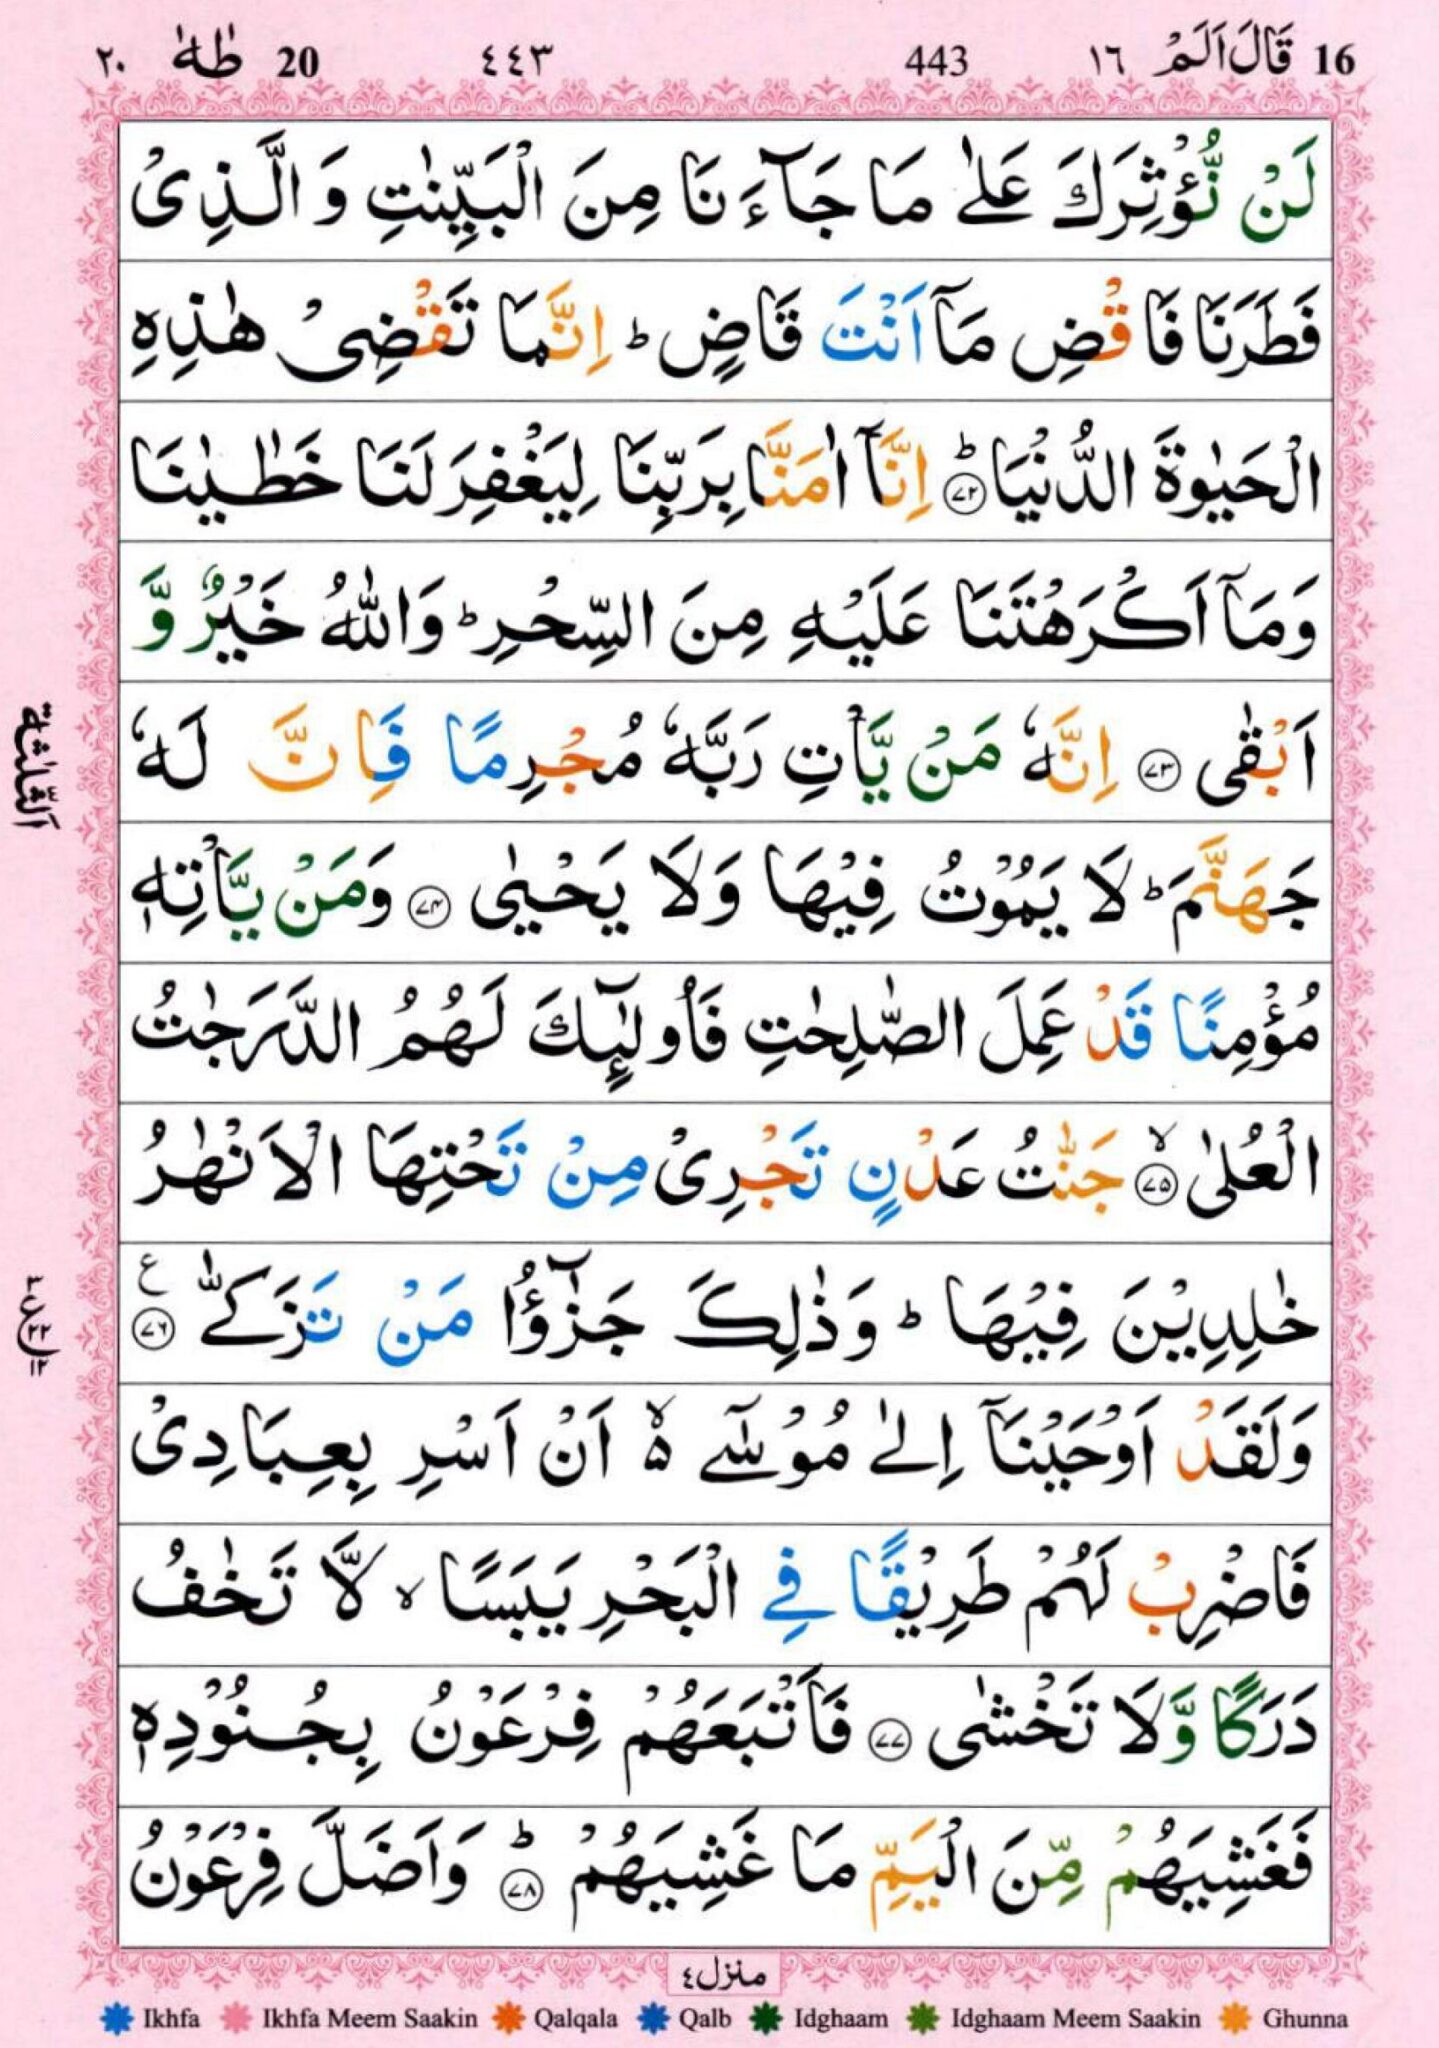 16 قَالَ اَلَمْ ١٦ 443 ٤٤٣ 20 طٰهٰ ٢٠
لَنْ نُّؤْثِرَكَ عَلٰى مَا جَآءَنَا مِنَ الْبَيِّنٰتِ وَالَّذِىْ
فَطَرَنَا فَاقْضِ مَآ اَنْتَ قَاضٍ ؕ اِنَّمَا تَقْضِىْ هٰذِهِ
الْحَيٰوةَ الدُّنْيَا ؕ ﴿٧٢﴾ اِنَّآ اٰمَنَّا بِرَبِّنَا لِيَغْفِرَ لَنَا خَطٰيٰنَا
وَمَآ اَكْرَهْتَنَا عَلَيْهِ مِنَ السِّحْرِ ؕ وَاللّٰهُ خَيْرٌ وَّ
اَبْقٰى ﴿٧٣﴾ اِنَّهٗ مَنْ يَّاْتِ رَبَّهٗ مُجْرِمًا فَاِنَّ لَهٗ
جَهَنَّمَ ؕ لَا يَمُوْتُ فِيْهَا وَلَا يَحْيٰى ﴿٧٤﴾ وَمَنْ يَّاْتِهٖ
مُؤْمِنًا قَدْ عَمِلَ الصّٰلِحٰتِ فَاُولٰٓئِكَ لَهُمُ الدَّرَجٰتُ
الْعُلٰى ۙ ﴿٧٥﴾ جَنّٰتُ عَدْنٍ تَجْرِىْ مِنْ تَحْتِهَا الْاَنْهٰرُ
خٰلِدِيْنَ فِيْهَا ؕ وَذٰلِكَ جَزٰٓؤُا مَنْ تَزَكّٰى ﴿٧٦﴾ ع
وَلَقَدْ اَوْحَيْنَآ اِلٰى مُوْسٰٓى ۙ۬ اَنْ اَسْرِ بِعِبَادِىْ
فَاضْرِبْ لَهُمْ طَرِيْقًا فِى الْبَحْرِ يَبَسًا ۙ لَّا تَخٰفُ
دَرَكًا وَّلَا تَخْشٰى ﴿٧٧﴾ فَاَتْبَعَهُمْ فِرْعَوْنُ بِجُنُوْدِهٖ
فَغَشِيَهُمْ مِّنَ الْيَمِّ مَا غَشِيَهُمْ ؕ ﴿٧٨﴾ وَاَضَلَّ فِرْعَوْنُ
اَلثَّلٰثَة
٣ ع ٢٢ ١٢
منزل ٤
Ikhfa Ikhfa Meem Saakin Qalqala Qalb Idghaam Idghaam Meem Saakin Ghunna